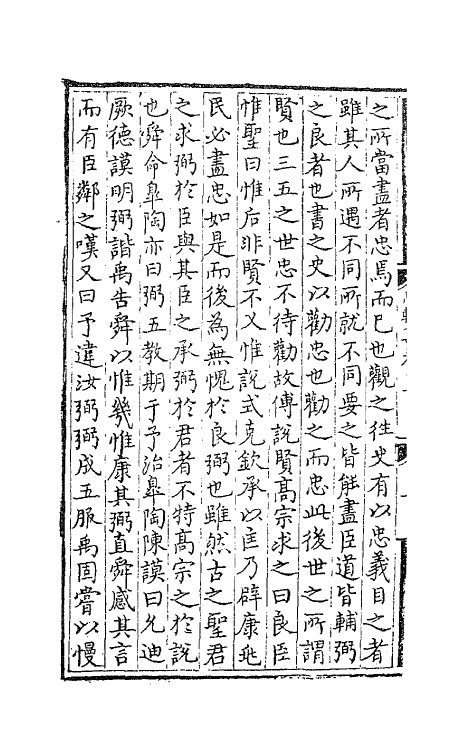 之所當盡者忠焉而已也觀之往史有以忠義目之者
雖其人所遇不同所就不同要之皆能盡臣道皆輔弼
之良者也書之史以勸忠也勸之而忠此後世之所謂
賢也三五之世忠不待勸故傅説賢髙宗求之曰良臣
惟聖曰惟后非賢不乂惟說式克欽承以匡乃辟康兆
民必盡忠如是而後為無愧於良弼也雖然古之聖君
之求弼於臣與其臣之承弼於君者不特髙宗之於説
也舜命臯陶亦曰弼五教期于予治臯陶陳謨曰允迪
厥德謨明弼諧禹告舜以惟幾惟康其弼直舜感其言
而有臣鄰之嘆又曰予違汝弼弼成五服禹固嘗以慢